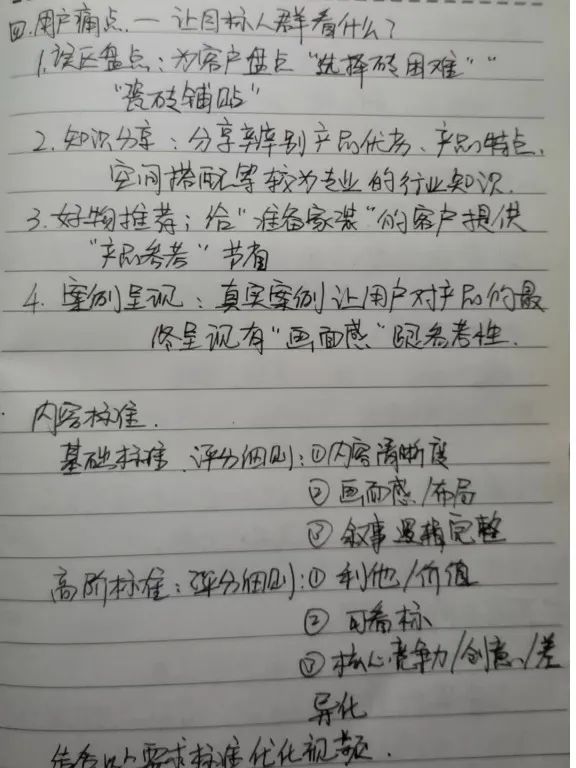 四.用户痛点 — 让目标人群看什么?
1.误区盘点:为客户盘点“选择砖困难”“
“瓷砖铺贴”
2.知识分享:分享辨别产品优劣、产品特点、
空间搭配等较为专业的行业知识.
3.好物推荐;给“准备家装”的客户提供
“产品参考”节省
4.案例呈现:真实案例让用户对产品的最
终呈现有“画面感”参考性.
内容标准.
基础标准.评分细则:①内容清晰度
②画面感/布局
③叙事逻辑完整
高阶标准:评分细则:①利他/价值
②可看标
③核心竞争力/创意/差
异化
结合以上要求标准优化视频.